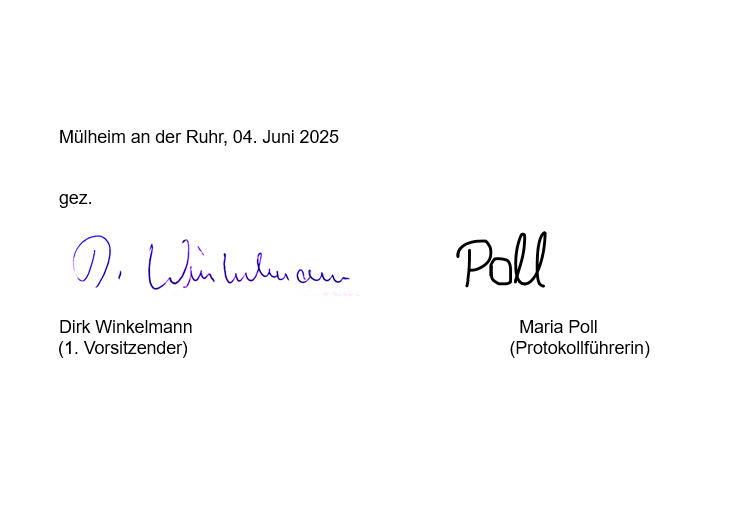 Mülheim an der Ruhr, 04. Juni 2025
gez.
D. Winkelmann Poll
Dirk Winkelmann Maria Poll
(1. Vorsitzender) (Protokollführerin)